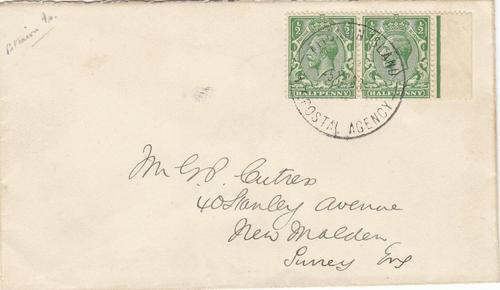 Pitcairn Is.
½ ½ ½ ½
HALFPENNY HALFPENNY
PITCAIRN ISLAND
N.Z. POSTAL AGENCY
Mr G.P. Cutress
40 Stanley Avenue
New Malden
Surrey Eng